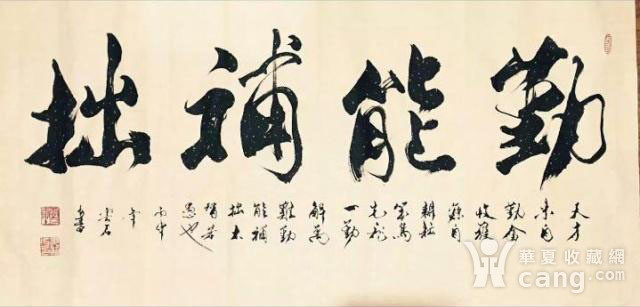 勤能補拙
天才
來自
勤奮
收獲
源自
耕耘
笨鳥
先飛
一勤
解萬
難勤
能補
拙
智若
愚也
丙申
年
書
華夏收藏網
cang.com